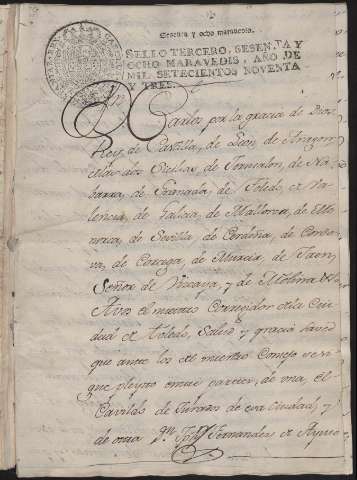 Sesenta y ocho maravedis.
SELLO TERCERO, SESENTA Y
OCHO MARAVEDIS, AÑO DE
MIL SETECIENTOS NOVENTA
Y TRES.
Carlos por la gracia de Dios
Rey de Castilla, de Leon, de Aragon
de las dos Sicilias de Jerusalen, de Na
barra, de Granada, de Toledo, de Va
lencia, de Galicia, de Mallorca, de Me
norca, de Sevilla, de Cerdeña, de Cordo
va, de Corcega, de Murcia, de Jaen,
Señor de Vizcaya, y de Molina &a
A vos el nuestro Corregidor de la Ciu
dad de Toledo, Salud y gracia saved
que ante los del nuestro Consejo se si
gue pleyto entre partes, de una, el
Cavildo de Jurados de esa Ciudad, y
de otra Fernandez de